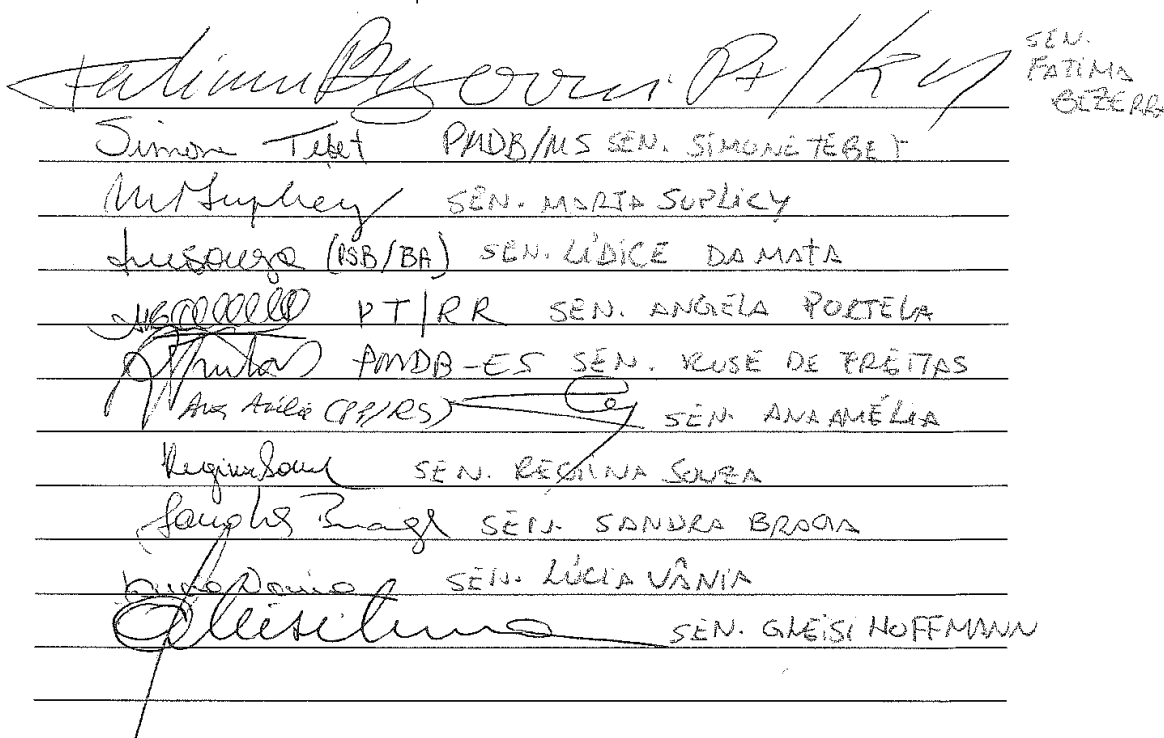 Fatima Bezerra Pt/RN SEN. FATIMA BEZERRA
Simone Tebet PMDB/MS SEN. SIMONE TEBET
SEN. MARTA SUPLICY
(PSB/BA) SEN. LÍDICE DA MATA
PT/RR SEN. ANGELA PORTELA
PMDB-ES SEN. ROSE DE FREITAS
Ana Amélia (PP/RS) SEN. ANA AMÉLIA
Regina Sousa SEN. REGINA SOUZA
Sandra Braga SEN. SANDRA BRAGA
SEN. LÚCIA VÂNIA
SEN. GLEISI HOFFMANN